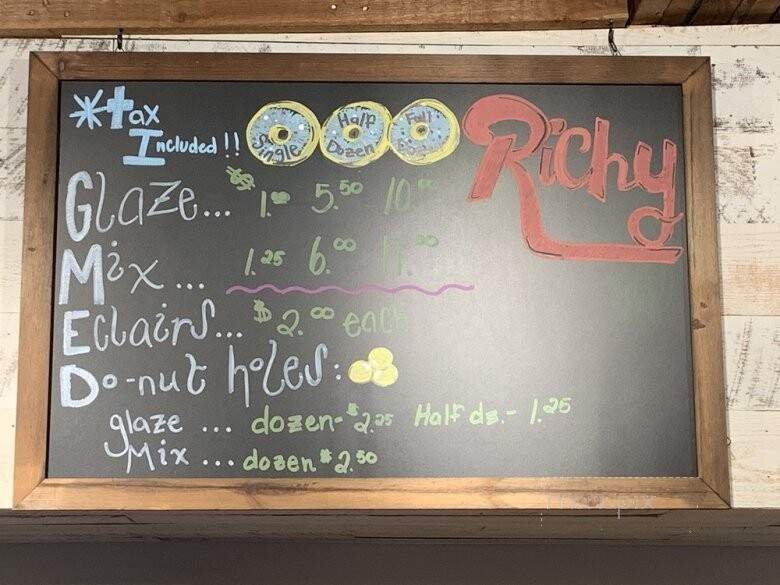 *tax
Included!!
Single Half Dozen Full
Richy
Glaze... $1.00 5.50 10.00
Mix... 1.25 6.00 11.00
Eclairs... $2.00 each
Do-nut holes:
glaze ... dozen-$2.25 Half dz.- 1.25
Mix ... dozen $2.50